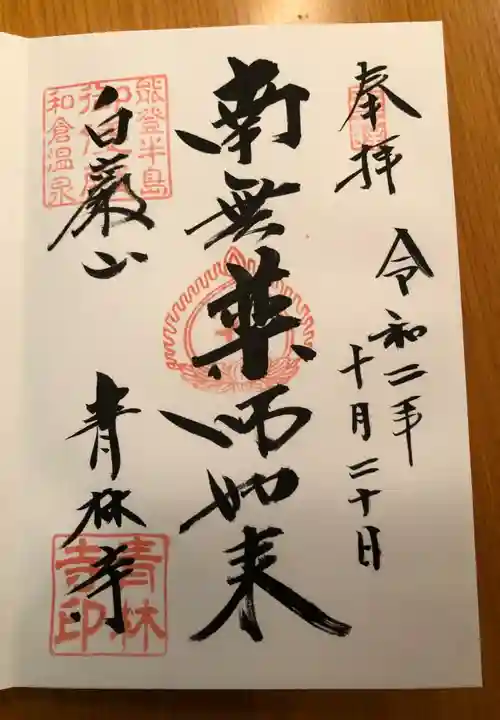 奉拝
令和二年
十月二十日
南無薬師如来
白巌山
青林寺
能登半島
和倉温泉
青林寺印